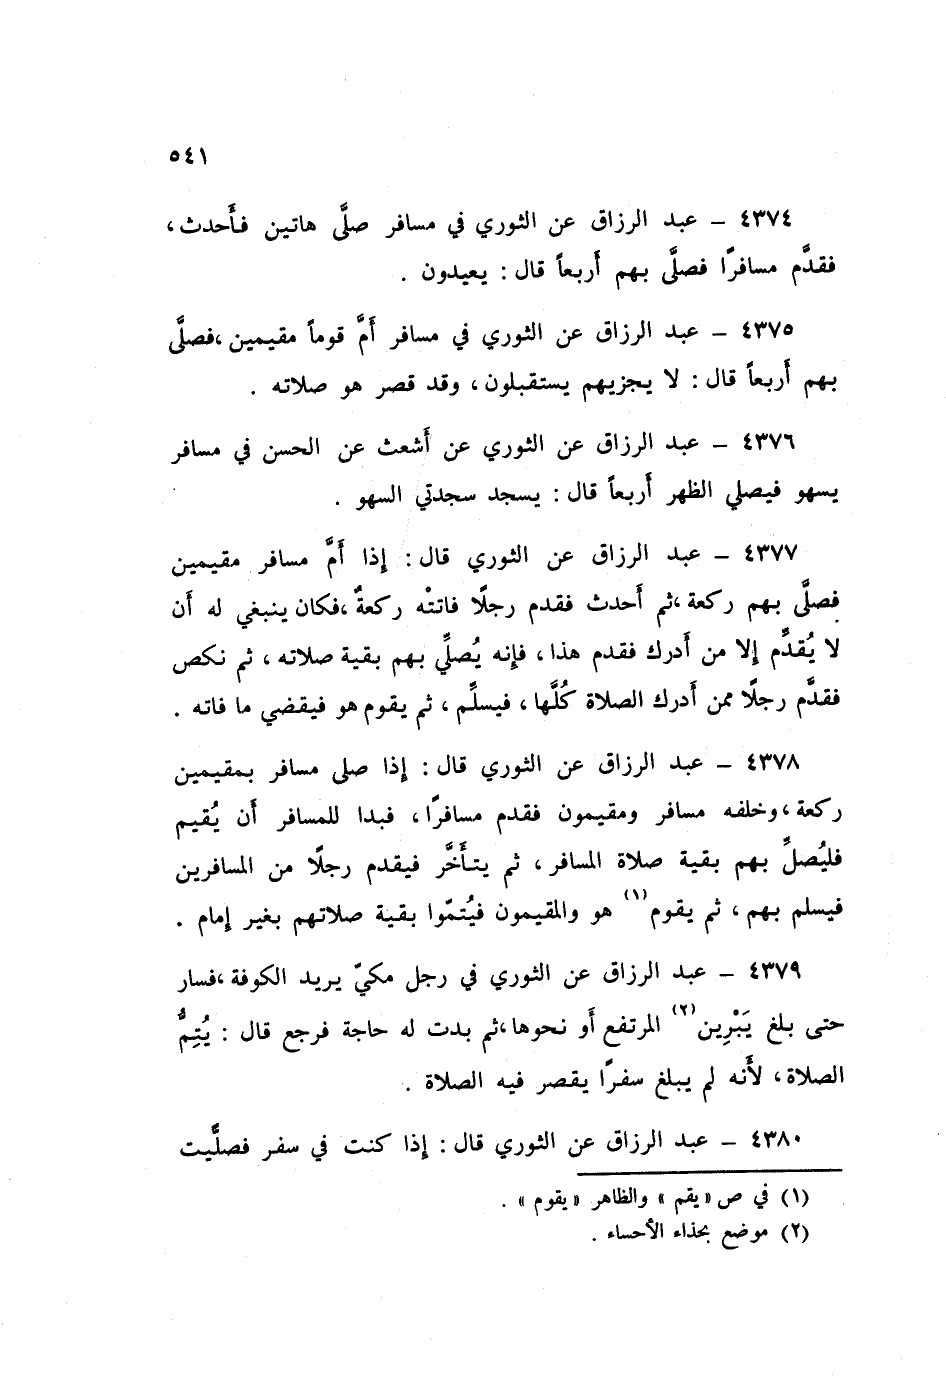 ٥٤١
٤٣٧٤ – عبد الرزاق عن الثوري في مسافر صلَّى هاتين فأَحدث ،
فقدَّم مسافرًا فصلَّى بهم أَربعاً قال : يعيدون .
٤٣٧٥ – عبد الرزاق عن الثوري في مسافر أَمَّ قوماً مقيمين ،فصلَّى
بهم أَربعاً قال : لا يجزيهم يستقبلون ، وقد قصر هو صلاته .
٤٣٧٦ – عبد الرزاق عن الثوري عن أَشعث عن الحسن في مسافر
يسهو فيصلي الظهر أَربعاً قال : يسجد سجدتي السهو .
٤٣٧٧ – عبد الرزاق عن الثوري قال : إِذا أَمَّ مسافر مقيمين
فصلَّى بهم ركعة ،ثم أَحدث فقدم رجلًا فاتتْه ركعةٌ ،فكان ينبغي له أَن
لا يُقدِّم إِلا من أَدرك فقدم هذا ، فإِنه يُصلِّي بهم بقية صلاته ، ثم نكص
فقدَّم رجلًا ممن أَدرك الصلاة كُلَّها ، فيسلِّم ، ثم يقوم هو فيقضي ما فاته .
٤٣٧٨ – عبد الرزاق عن الثوري قال : إِذا صلى مسافر بمقيمين
ركعة ،وخلفه مسافر ومقيمون فقدم مسافرًا ، فبدا للمسافر أَن يُقيم
فليُصلِّ بهم بقية صلاة المسافر ، ثم يتأَخَّر فيقدم رجلًا من المسافرين
فيسلم بهم ، ثم يقوم(١) هو والمقيمون فيُتمّوا بقية صلاتهم بغير إِمام .
٤٣٧٩ – عبد الرزاق عن الثوري في رجل مكيّ يريد الكوفة ،فسار
حتى بلغ يَبْرِين(٢) المرتفع أَو نحوها ،ثم بدت له حاجة فرجع قال : يُتِمُّ
الصلاة ، لأَنه لم يبلغ سفرًا يقصر فيه الصلاة .
٤٣٨٠ – عبد الرزاق عن الثوري قال : إِذا كنت في سفر فصلَّيت
(١) في ص «يقم» والظاهر «يقوم» .
(٢) موضع بحذاء الأحساء .